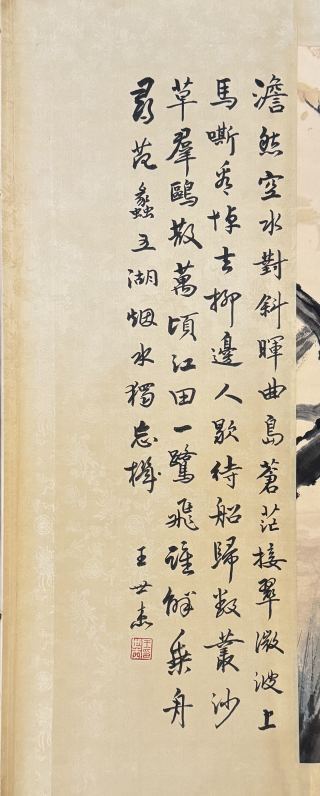 澹然空水對斜暉曲島蒼茫接翠微波上
馬嘶看棹去柳邊人歇待船歸数叢沙
草羣鷗散萬頃江田一鷺飛誰解乘舟
尋范蠡五湖烟水獨忘機
王世杰